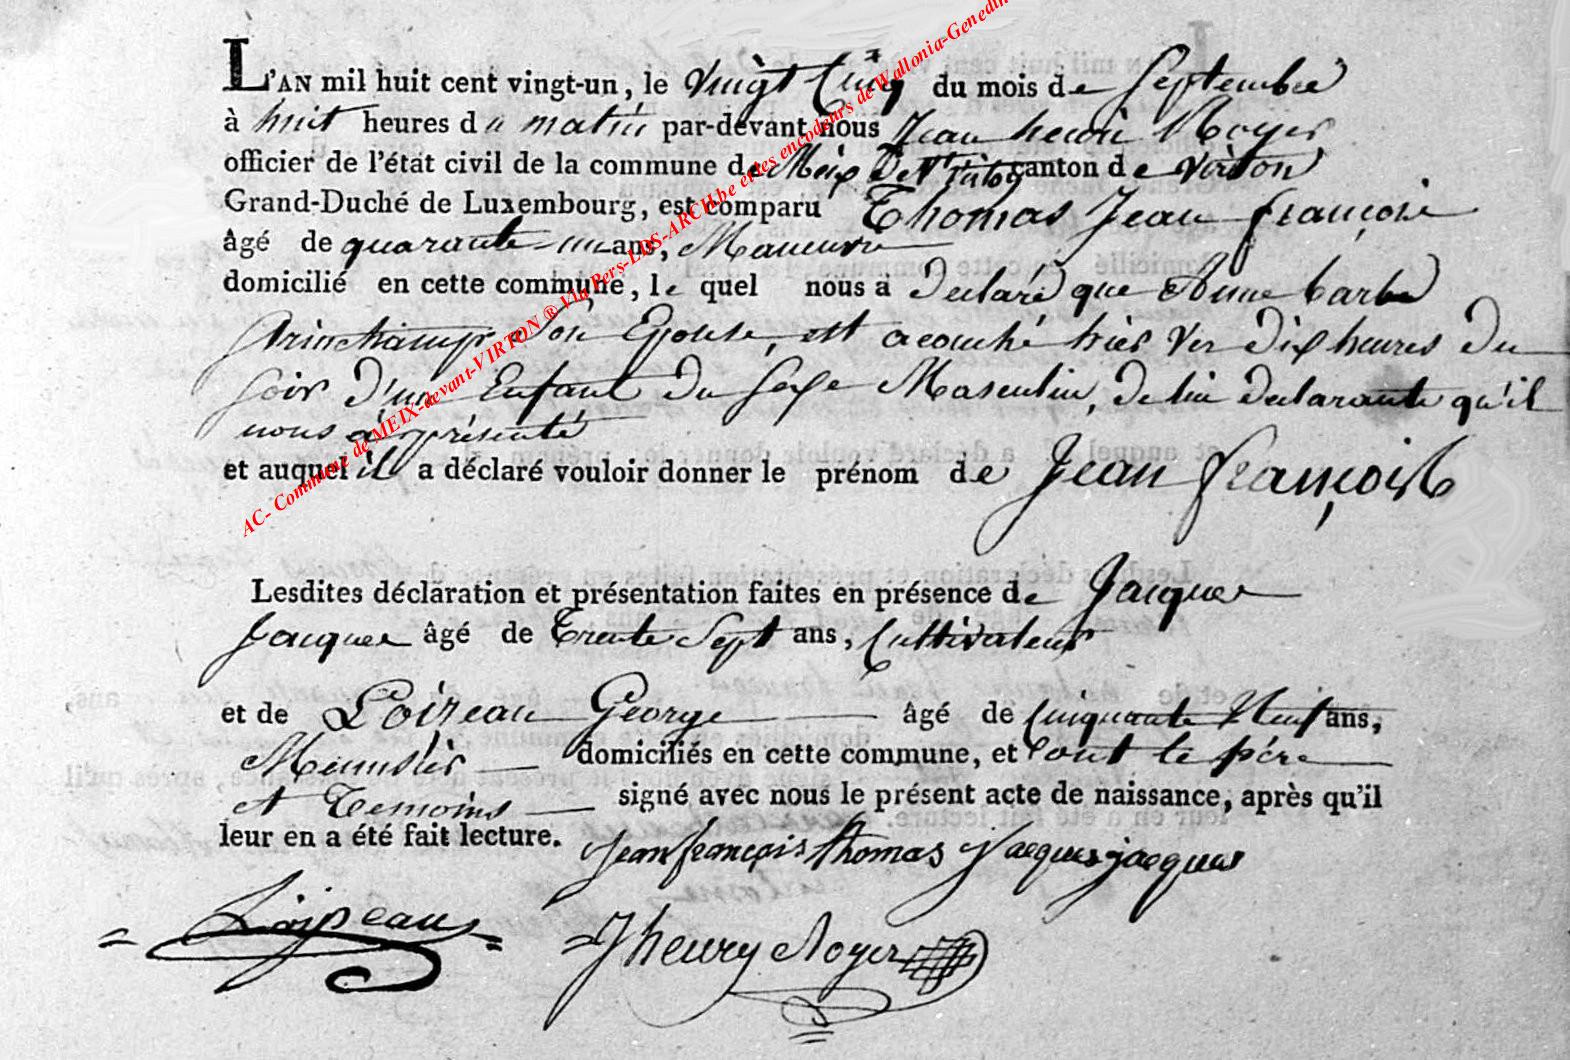 L'AN mil huit cent vingt-un, le Vingt Cinq du mois de Septembre
à huit heures du matin par-devant nous Jean henri Royer
officier de l'état civil de la commune de Meix Devt Virton canton de virton
Grand-Duché de Luxembourg, est comparu Thomas Jean françois
âgé de quarante-un ans, Maneuvre
domicilié en cette commune, le quel nous a Declaré que Anne barbe
Grinchamps Son Epouse, est acouché hier Ver Dix heures Du
Soir D'un Enfant Du Sexe Masculin, De lui Declarante qu'il
nous à présenté
et auquel il a déclaré vouloir donner le prénom de Jean françois
Lesdites déclaration et présentation faites en présence de Jacques
Jacques âgé de Trente Sept ans, Cultivateur
et de Loizeau George âgé de Cinquante Neuf ans,
Meunier domiciliés en cette commune, et ont le père
et Temoins signé avec nous le présent acte de naissance, après qu'il
leur en a été fait lecture. jean françois thomas Jacques jacques
Loizeau J henry Royer
AC- Commune de MEIX-devant-VIRTON ® Via Pers-EDS-ARCH.be et les encodeurs de Wallonia-Genedin